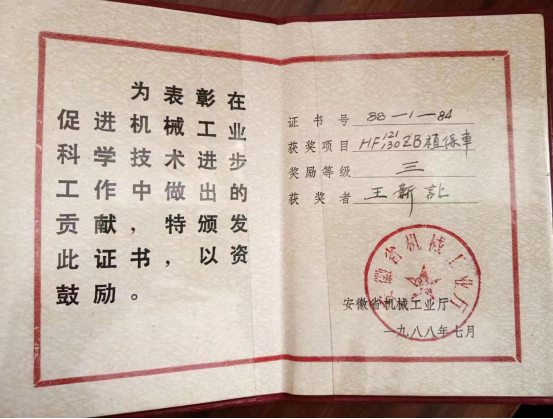 为表彰在
促进机械工业
科学技术进步
工作中做出的
贡献，特颁发
此证书，以资
鼓励。
证书号 88-1-84
获奖项目 HF121/130ZB植保車
奖励等级 三
获奖者 王新
安徽省机械工业厅
安徽省机械工业厅
一九八八年七月